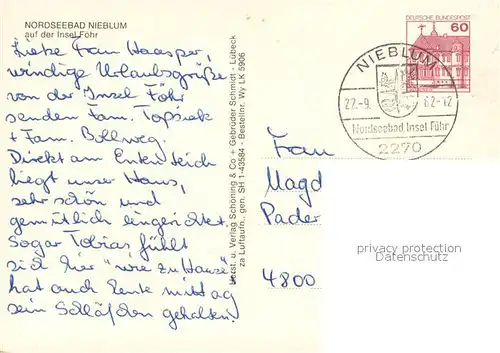 NORDSEEBAD NIEBLUM
auf der Insel Föhr
Liebe Frau Haasper,
windige Urlaubsgrüße
von der Insel Föhr
senden Fam. Topsiek
+ Fam. Bollweg.
Direkt am Ententeich
liegt unser Haus,
sehr schön und
gemütlich eingerichtet.
Sogar Tobias fühlt
sich hier "wie zu Hause",
hat auch heute mittag
sein Schläfchen gehalten.
Verst. u. Verlag Schöning & Co + Gebrüder Schmidt - Lübeck
za Luftaufn., gen. SH 1-43584 - Bestellnr. Wy LK 5906
DEUTSCHE BUNDESPOST
60
NIEBLUM
22.-9. 82-12
Nordseebad Insel Föhr
2270
Frau
Magd
Pader
4800
privacy protection
Datenschutz